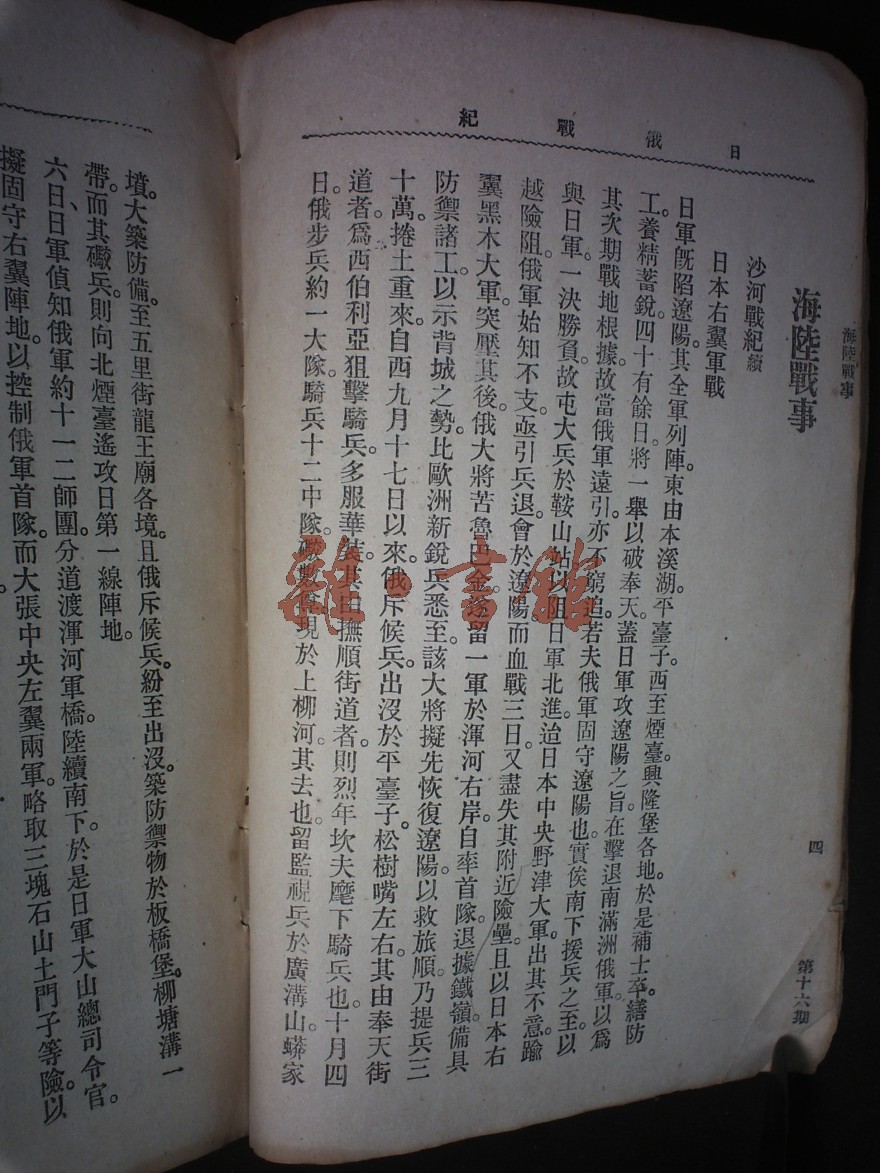 日俄戰紀
海陸戰事
四
第十六期
海陸戰事
沙河戰紀續
日本右翼軍戰
日軍旣陷遼陽。其全軍列陣。東由本溪湖。平臺子。西至煙臺。興隆堡各地。於是補士卒。繕防
工。養精蓄銳。四十有餘日。將一舉以破奉天。蓋日軍攻遼陽之旨。在擊退南滿洲俄軍。以爲
其次期戰地根據。故當俄軍遠引。亦不窮追。若夫俄軍固守遼陽也。實俟南下援兵之至。以
與日軍一決勝負。故屯大兵於鞍山站。以阻日軍北進。迨日本中央野津大軍。出其不意。踰
越險阻。俄軍始知不支。亟引兵退。會於遼陽。而血戰三日。又盡失其附近險壘。且以日本右
翼黑木大軍。突壓其後。俄大將苦魯巴金。遂留一軍於渾河右岸。自率首隊。退據鐵嶺。備具
防禦諸工。以示背城之勢。比歐洲新銳兵悉至。該大將擬先恢復遼陽。以救旅順。乃提兵三
十萬。捲土重來。自西九月十七日以來。俄斥候兵。出沒於平臺子。松樹嘴左右。其由奉天街
道者。爲西伯利亞狙擊騎兵。多服華裝。其由撫順街道者。則烈年坎夫麾下騎兵也。十月四
日。俄步兵約一大隊。騎兵十二中隊。礮數尊。現於上柳河。其去也。留監視兵於廣溝山。蟒家
墳。大築防備。至五里街龍王廟各境。且俄斥候兵。紛至出沒。築防禦物於板橋堡。柳塘溝一
帶。而其礮兵。則向北煙臺遙攻日第一線陣地。
六日。日軍偵知俄軍約十一二師團。分道渡渾河軍橋。陸續南下。於是日軍大山總司令官。
擬固守右翼陣地。以控制俄軍首隊。而大張中央左翼兩軍。略取三塊石山土門子等險。以
雜·書館